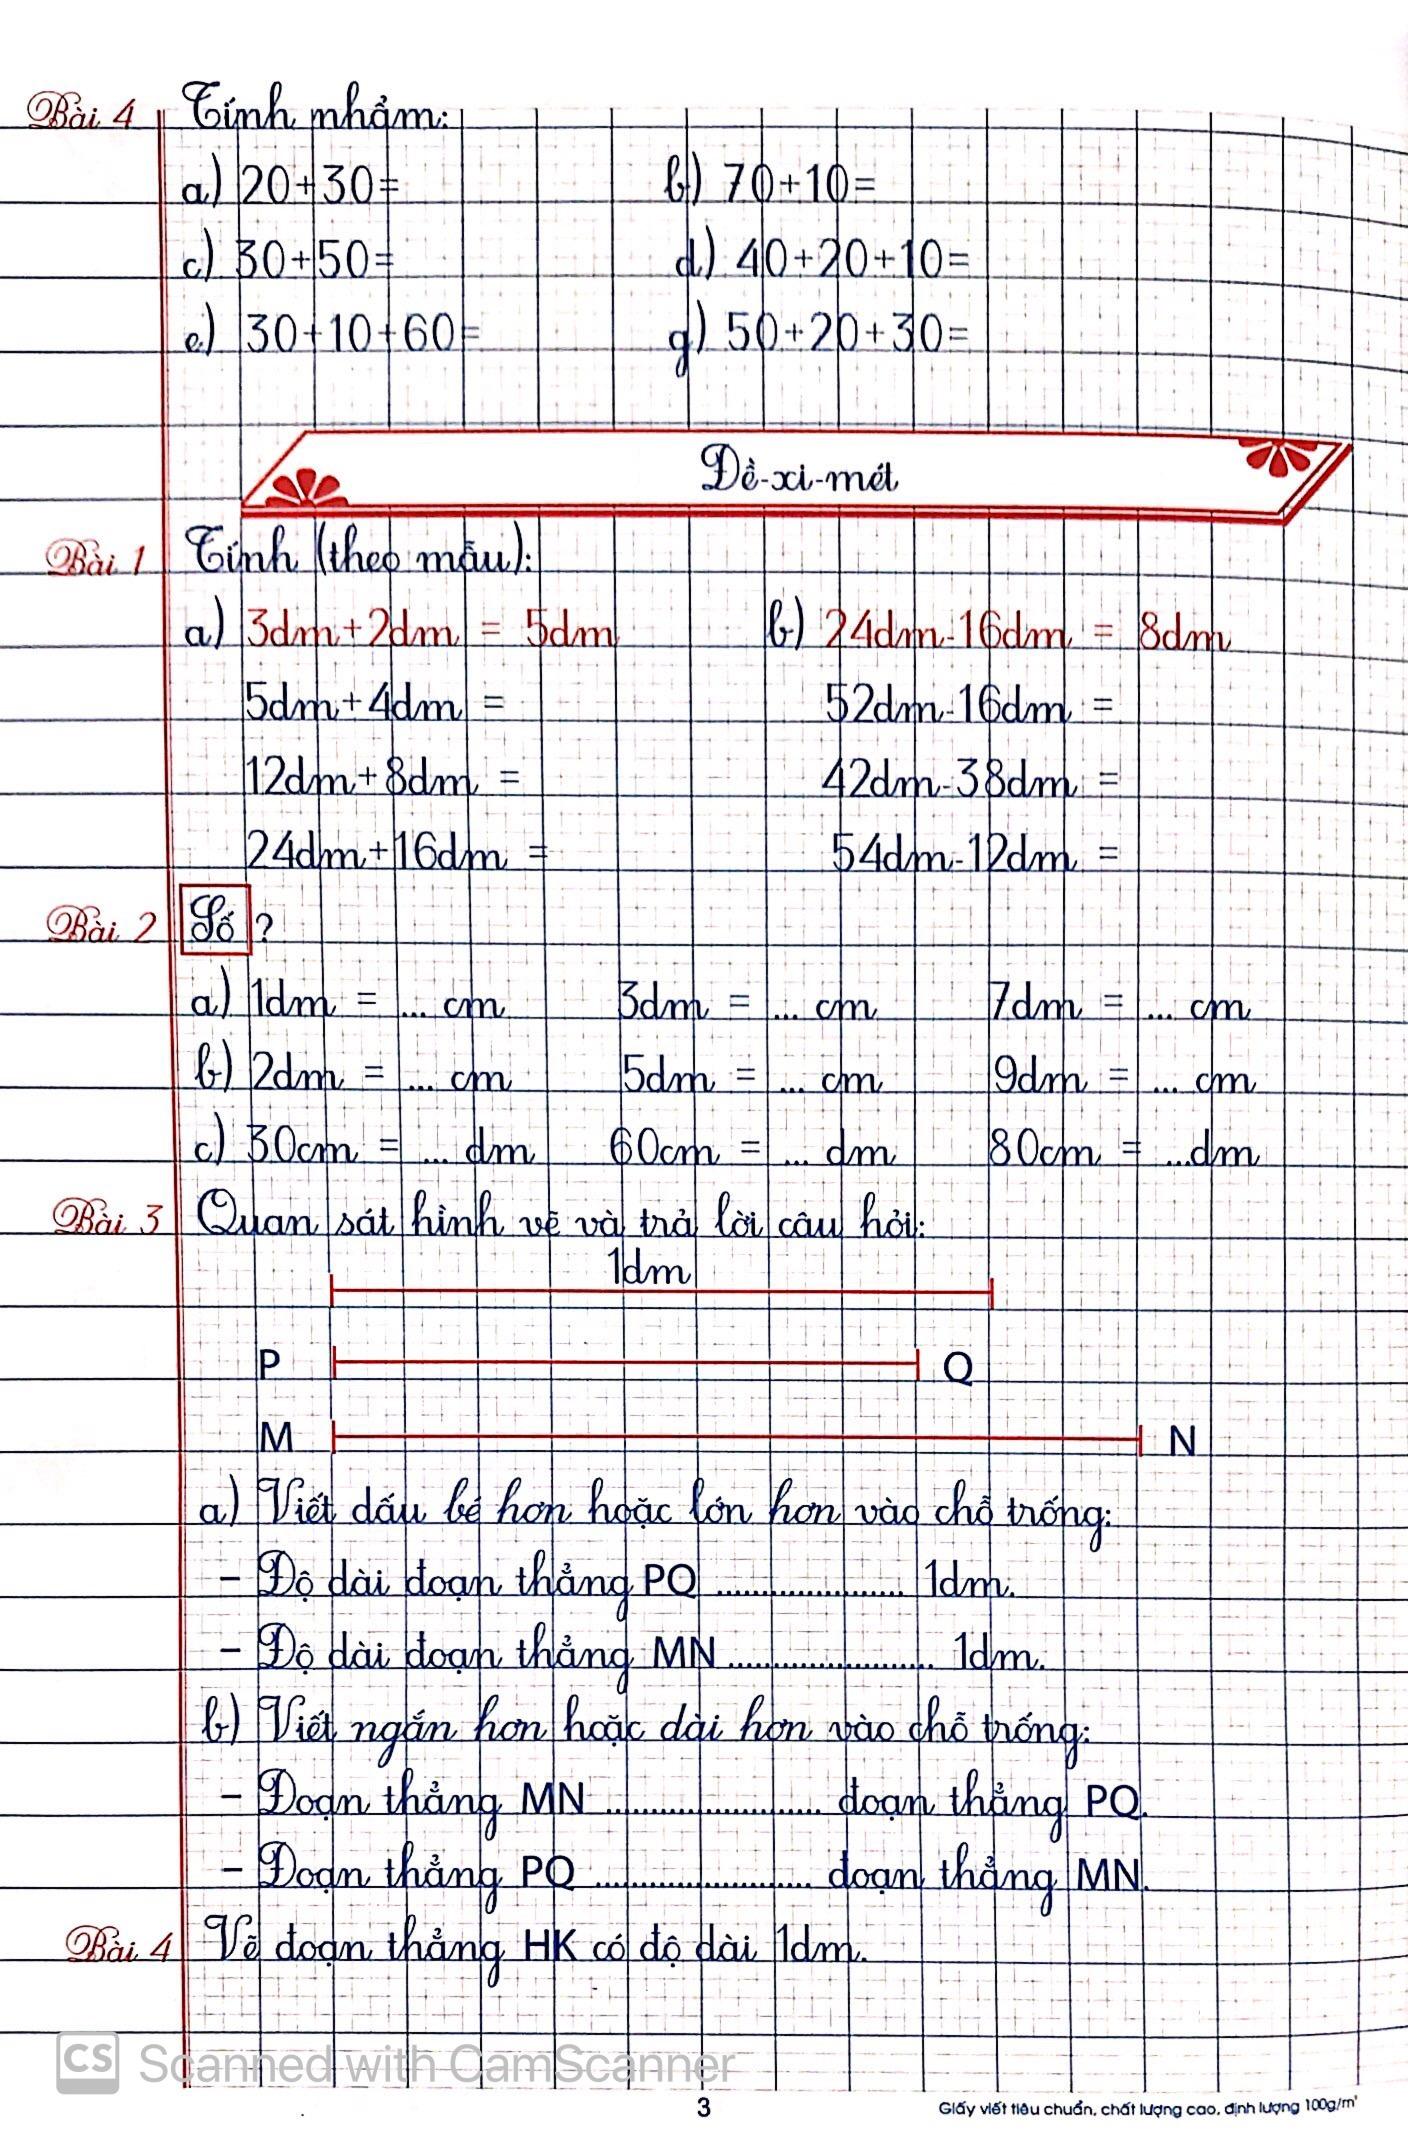 Bài 4 Tính nhẩm:
a) 20+30= b) 70+10=
c) 30+50= d) 40+20+10=
e) 30+10+60= g) 50+20+30=
Đề-xi-mét
Bài 1 Tính (theo mẫu):
a) 3dm+2dm = 5dm b) 24dm-16dm = 8dm
5dm+4dm = 52dm-16dm =
12dm+8dm = 42dm-38dm =
24dm+16dm = 54dm-12dm =
Bài 2 Số ?
a) 1dm = ... cm 3dm = ... cm 7dm = ... cm
b) 2dm = ... cm 5dm = ... cm 9dm = ... cm
c) 30cm = ... dm 60cm = ... dm 80cm = ...dm
Bài 3 Quan sát hình vẽ và trả lời câu hỏi:
1dm
P Q
M N
a) Viết dấu bé hơn hoặc lớn hơn vào chỗ trống:
– Độ dài đoạn thẳng PQ .................... 1dm.
– Độ dài đoạn thẳng MN ...................... 1dm.
b) Viết ngắn hơn hoặc dài hơn vào chỗ trống:
– Đoạn thẳng MN ....................... đoạn thẳng PQ.
– Đoạn thẳng PQ ....................... đoạn thẳng MN.
Bài 4 Vẽ đoạn thẳng HK có độ dài 1dm.
CS Scanned with CamScanner
3
Giấy viết tiêu chuẩn, chất lượng cao, định lượng 100g/m²